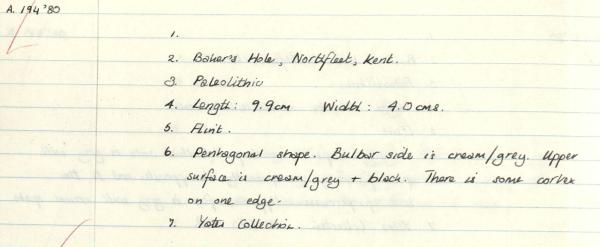 A. 194'80
1.
2. Baker's Hole, Northfleet, Kent.
3. Paleolithic
4. Length: 9.9cm Width: 4.0cms.
5. Flint.
6. Pentagonal shape. Bulbar side is cream/grey. Upper
surface is cream/grey + black. There is some cortex
on one edge.
7. Yates Collection.